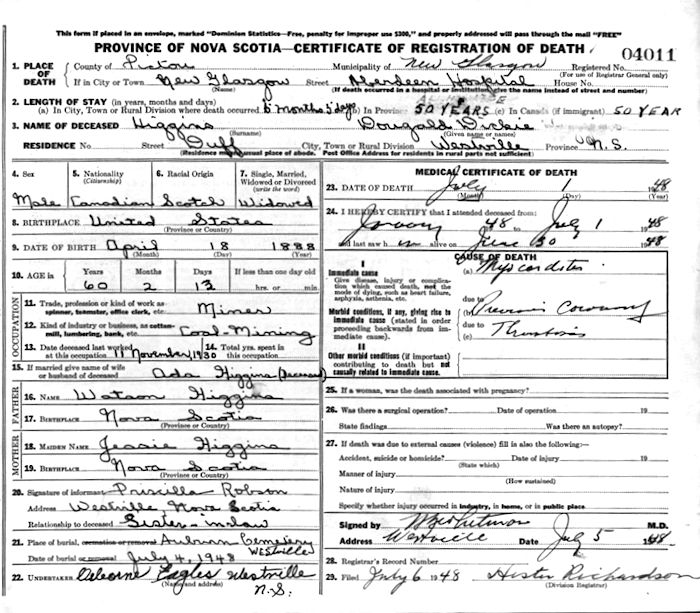 This form if placed in an envelope, marked "Dominion Statistics—Free, penalty for improper use $300," and properly addressed will pass through the mail "FREE"
PROVINCE OF NOVA SCOTIA—CERTIFICATE OF REGISTRATION OF DEATH
04011
1. PLACE OF DEATH
County of Pictou Municipality of New Glasgow Registered No.
(For use of Registrar General only)
If in City or Town New Glasgow Street Aberdeen Hospital House No.
(Name) (If death occurred in a hospital or institution, give the name instead of street and number)
2. LENGTH OF STAY (in years, months and days)
(a) In City, Town or Rural Division where death occurred 5 months 5 days (b) In Province 50 YEARS (c) In Canada (if immigrant) 50 YEAR
3. NAME OF DECEASED Higgins Dougald
(Surname) (Given name or names)
RESIDENCE No. Street Duff City, Town or Rural Division Westville Province N.S.
(Residence means usual place of abode. Post Office Address for residents in rural parts not sufficient)
4. Sex
5. Nationality (Citizenship)
6. Racial Origin
7. Single, Married, Widowed or Divorced (write the word)
Male Canadian Scotch Widowed
8. BIRTHPLACE United States
(Province or Country)
9. DATE OF BIRTH April 18 1888
(Month) (Day) (Year)
10. AGE in Years Months Days If less than one day old
60 2 13 hrs. or min.
OCCUPATION
11. Trade, profession or kind of work as spinner, teamster, office clerk, etc. Miner
12. Kind of industry or business, as cotton-mill, lumbering, bank, etc. Coal Mining
13. Date deceased last worked at this occupation 11 November/1930
14. Total yrs. spent in this occupation
15. If married give name of wife or husband of deceased Ada Higgins (deceased)
FATHER
16. NAME Watson Higgins
17. BIRTHPLACE Nova Scotia
(Province or Country)
MOTHER
18. MAIDEN NAME Jessie Higgins
19. BIRTHPLACE Nova Scotia
(Province or Country)
20. Signature of informant Priscilla Robson
Address Westville, Nova Scotia
Relationship to deceased Sister-in-law
21. Place of burial, cremation or removal Auburn Cemetery Westville
Date of burial or removal July 4, 1948
22. UNDERTAKER Osborne Eagles Westville N.S.
(Name and address)
MEDICAL CERTIFICATE OF DEATH
23. DATE OF DEATH July 1 1948
(Month) (Day)
24. I HEREBY CERTIFY that I attended deceased from:
48 to July 1 1948
and last saw h im alive on June 30 1948
CAUSE OF DEATH
I
Immediate cause (a) Myocarditis
Give disease, injury or complication which caused death, not the mode of dying, such as heart failure, asphyxia, asthenia, etc.
due to (b) Previous Coronary
Morbid conditions, if any, giving rise to immediate cause (stated in order proceeding backwards from immediate cause).
due to (c) Thrombosis
II
Other morbid conditions (if important) contributing to death but not causally related to immediate cause.
25. If a woman, was the death associated with pregnancy?
26. Was there a surgical operation? Date of operation 19
State findings Was there an autopsy?
27. If death was due to external causes (violence) fill in also the following:—
Accident, suicide or homicide? Date of injury 19
(State which)
Manner of injury
(How sustained)
Nature of injury
Specify whether injury occurred in industry, in home, or in public place.
Signed by M.D.
Address Westville Date July 5 1948
28. Registrar's Record Number
29. Filed July 6 1948 Hester Richardson
(Division Registrar)